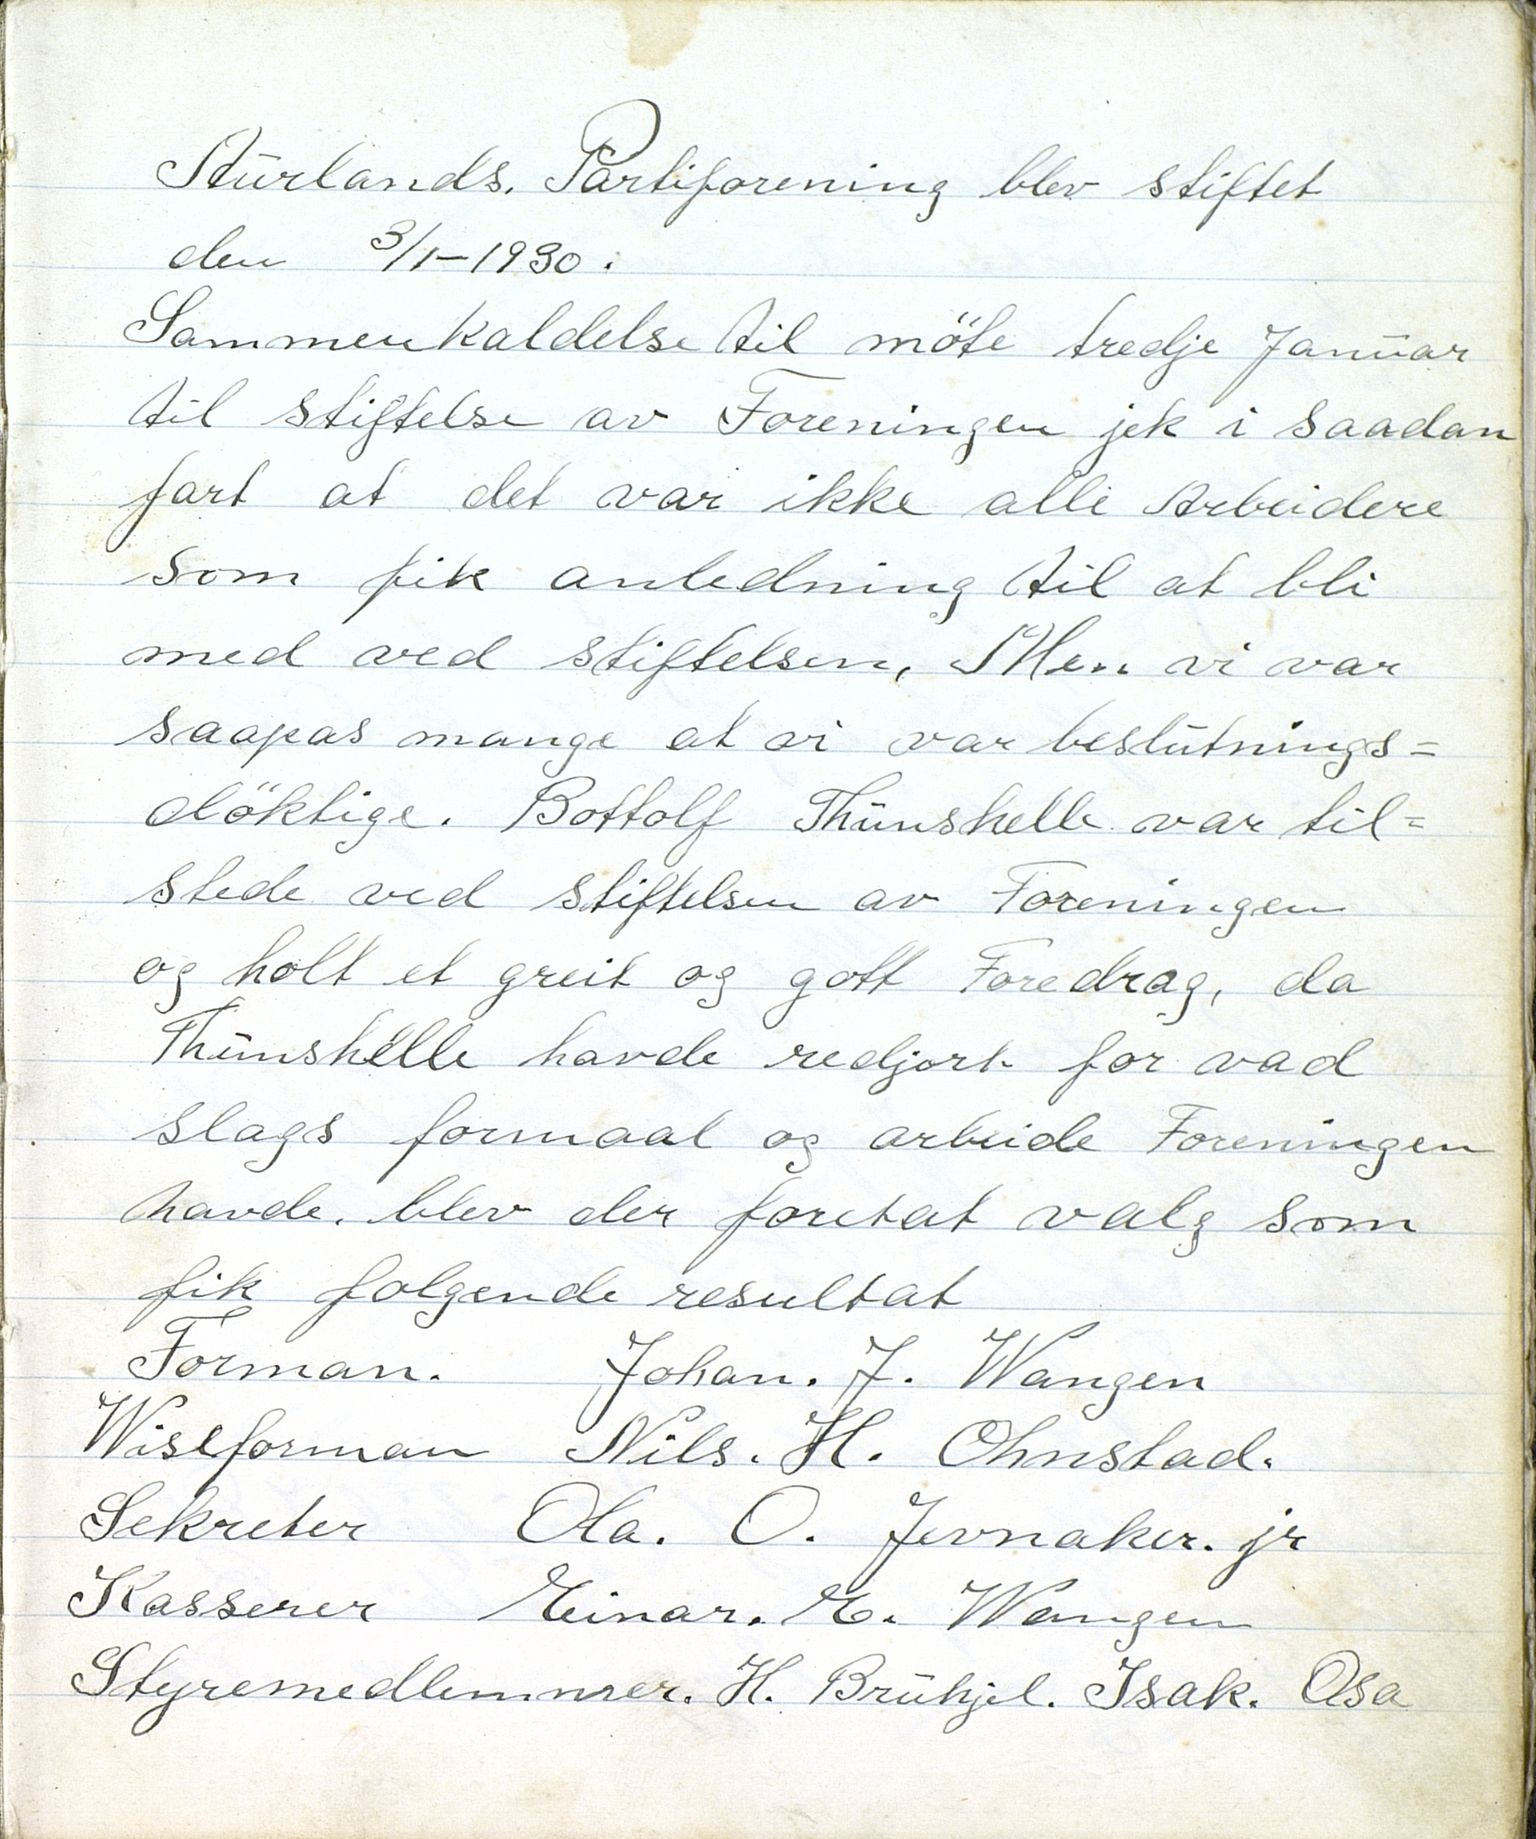 Aurlands. Partiforening blev stiftet
den 3/1-1930.
Sammenkaldelse til möte tredje Januar
til stiftelse av Foreningen jek i saadan
fart at det var ikke alle Arbeidere
som fik anledning til at bli
med ved stiftelsen, Men vi var
saapas mange at vi var beslutnings=
döktige. Bottolf Thunshelle var til=
stede ved stiftelsen av Foreningen
og holt et greit og gott Foredrag, da
Thunshelle havde redjort for vad
slags formaal og arbeide Foreningen
havde. blev der foretat valg som
fik folgende resultat
Forman. Johan. J. Wangen
Wiseforman Nils. H. Ohnstad.
Sekreter Ola. O. Jevnaker. jr
Kasserer Einar. E. Wangen
Styremedlemmer. H. Bruhjel. Isak. Osa